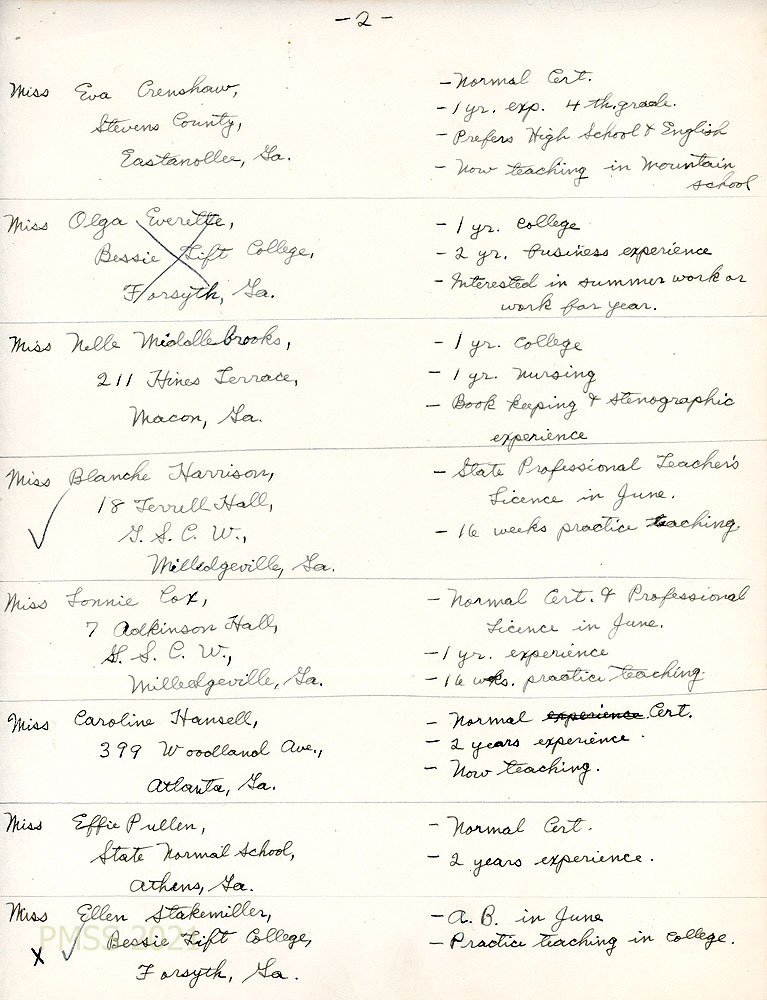 -2-
Miss Eva Crenshaw,
Stevens County,
Eastanollee, Ga.
- Normal Cert.
- 1 yr. exp. 4th. grade.
- Prefers High School & English
- Now teaching in Mountain
school
Miss Olga Everette,
Bessie Tift College,
Forsyth, Ga.
- 1 yr. College
- 2 yr. business experience
- Interested in summer work or
work for year.
Miss Nelle Middlebrooks,
211 Hines Terrace,
Macon, Ga.
- 1 yr. College
- 1 yr. Nursing
- Book keeping & Stenographic
experience
Miss Blanche Harrison,
18 Terrell Hall,
G. S. C. W.,
Milledgeville, Ga.
- State Professional Teacher's
Licence in June.
- 16 weeks practice teaching.
Miss Lonnie Cox,
7 Adkinson Hall,
G. S. C. W.,
Milledgeville, Ga.
- Normal Cert. & Professional
Licence in June.
- 1 yr. experience
- 16 wks. practice teaching.
Miss Caroline Hansell,
399 Woodland Ave.,
Atlanta, Ga.
- Normal experience Cert.
- 2 years experience.
- Now teaching.
Miss Effie Pullen,
State Normal School,
Athens, Ga.
- Normal Cert.
- 2 years experience.
Miss Ellen Stakemiller,
x ✓ Bessie Tift College,
Forsyth, Ga.
- A. B. in June
- Practice teaching in College.
PMSS 2021